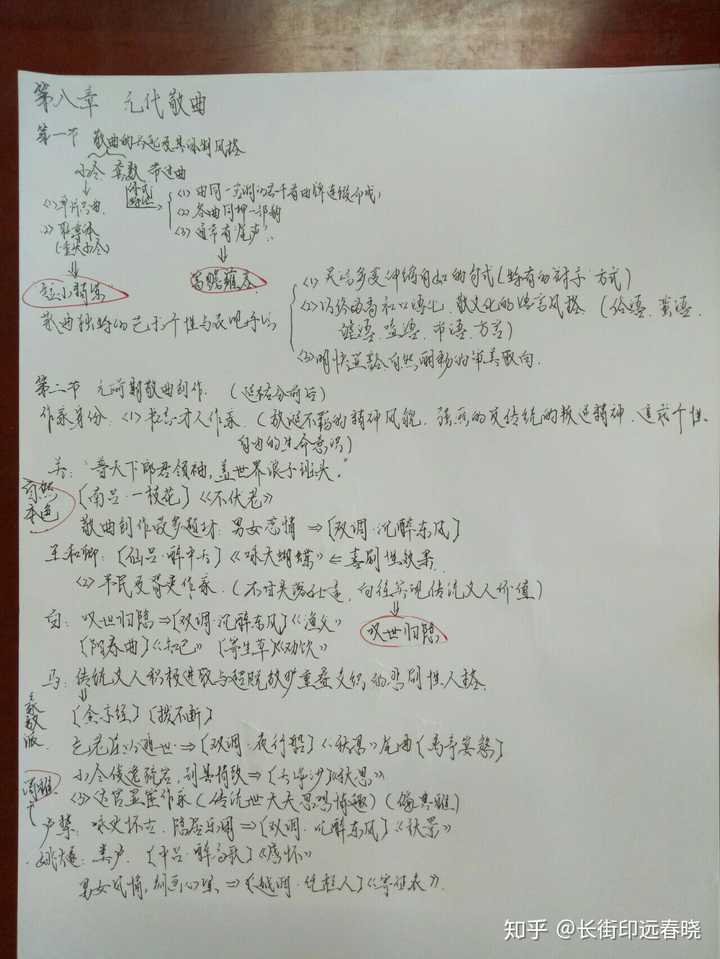 第八章 元代散曲
第一节 散曲的兴起及其体制风格
小令 套数 带过曲
(1)单片只曲
(2)联章体
(重头小令)
体式特征
(1)由同一宫调的若干首曲牌连缀而成
(2)各曲同押一部韵
(3)通常有尾声
短小精练
富赡雍容
散曲独特的艺术个性与表现手法
(1)灵活多变伸缩自如的句式(特有的衬子方式)
(2)以俗为尚和口语化、散文化的语言风格 (俗语、蛮语、
谑语、嗑语、市语、方言)
(3)明快显豁自然酣畅的审美取向.
第二节 元前期散曲创作.(延祐分前后)
作家身份 (1)书会才人作家.(放诞不羁的精神风貌、强烈的反传统的叛逆精神、追求个性
自由的生命意识)
自然
本色
关:“普天下郎君领袖,盖世界浪子班头.”
[南吕·一枝花]《不伏老》
散曲创作最多题材:男女恋情 ⇒[双调·沉醉东风]
王和卿:[仙吕·醉中天]《咏大蝴蝶》⇐喜剧性效果
(2)平民及胥吏作家.(不甘吴落仕途,向往实现传统文人价值)
叹世归隐
白:叹世归隐⇒[双调·沉醉东风]《渔父》
[阳春曲]《知己》[寄生草]《劝饮》
马:传统文人积极进取与超脱放旷重叠交织的悲剧性人格
豪放派
[金字经][拨不断]
[双调·夜行船]《秋思》尾曲[离亭宴煞]
小令俊逸疏宕,别具情致⇒[天净沙]《秋思》
(3)达官显宦作家(传统士大夫思想情趣)(偏典雅)
卢挚:咏史怀古、隐居乐闲⇒[双调·沉醉东风]《秋景》
姚燧:类卢.[中吕·醉高歌]《感怀》
男女风情,刻画心思⇒[越调·凭阑人]《寄征衣》.
知乎 @长街印远春晓